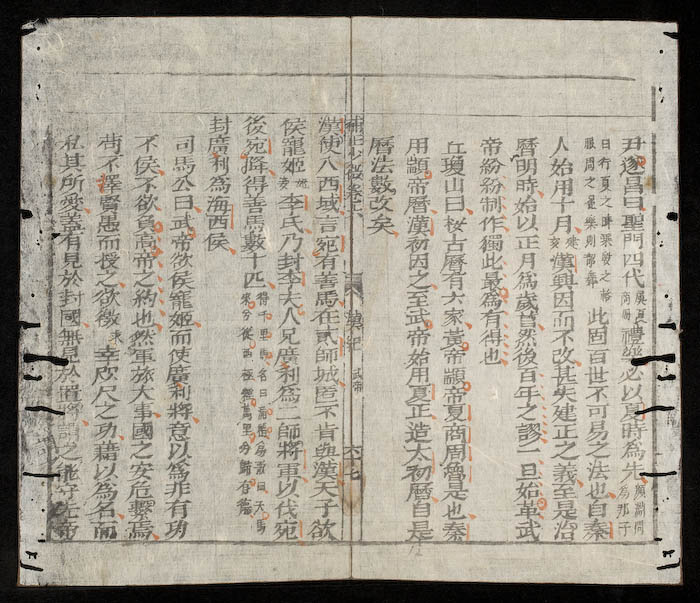 尹遂昌曰聖門四代虞夏商周禮樂必以夏時為先顏淵問為邦子
曰行夏之時乘殷之輅服周之冕樂則韶舞此固百世不可易之法也自秦
人始用十月建亥漢興因而不改甚失建正之義至是治
曆明時始以正月為歲首然後百年之謬一旦始革武
帝紛紛制作獨此最為有得也
丘瓊山曰桉古曆有六家黃帝顓帝夏商周魯是也秦
用顓帝曆漢初因之至武帝始用夏正造太初曆自是
曆法數改矣
補正少微卷之六 漢紀 武帝 六七
漢使入西域言宛有善馬在貳師城匿不肯與漢天子欲
侯寵姬李氏乃封李夫人兄廣利為二師將軍以伐宛
後宛降得善馬數十匹得千里馬名曰蒲梢為歌曰天馬來兮從西極經萬里兮歸有德
封廣利為海西侯
司馬公曰武帝欲侯寵姬而使廣利將意以為非有功
不侯不欲負高帝之約也然軍旅大事國之安危繫焉
苟不擇賢愚而授之欲徼幸咫尺之功藉以為名而
私其所愛蓋有見於封國無見於置將謂之能守先帝